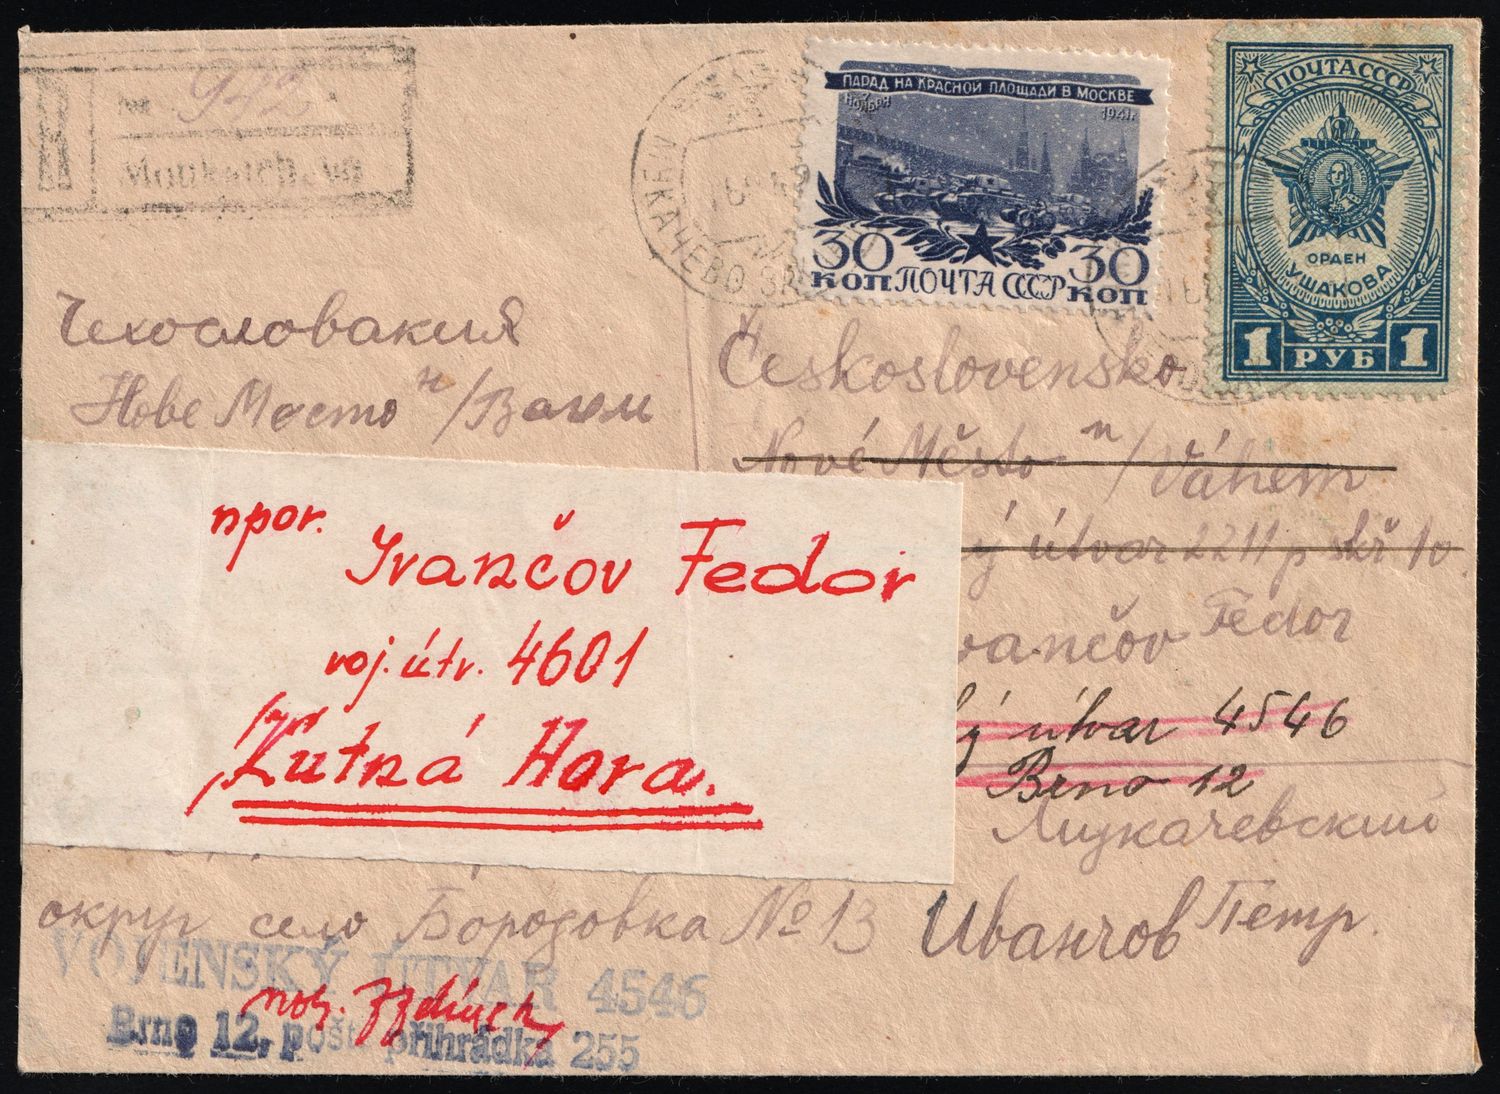 №
Moukatchevo
ПАРАД НА КРАСНОЙ ПЛОЩАДИ В МОСКВЕ
7 НОЯБРЯ
1941г.
30 30
КОП ПОЧТА СССР КОП
ПОЧТА СССР
ОРДЕН
УШАКОВА
1 РУБ 1
МУКАЧЕВО
Чехословакия
Нове Место н/Вагом
Československo
Nové Město n/Váhem
ý útvar 2211 p skř 10.
vančov Fedor
ý útvar 4546
Brno 12
npor.
Ivančov Fedor
voj. útv. 4601
Kutná Hora.
Мукачевский
округ село Бородовка № 13 Иванчов Петр.
VOJENSKÝ ÚTVAR 4546
Brno 12, pošt. přihrádka 255